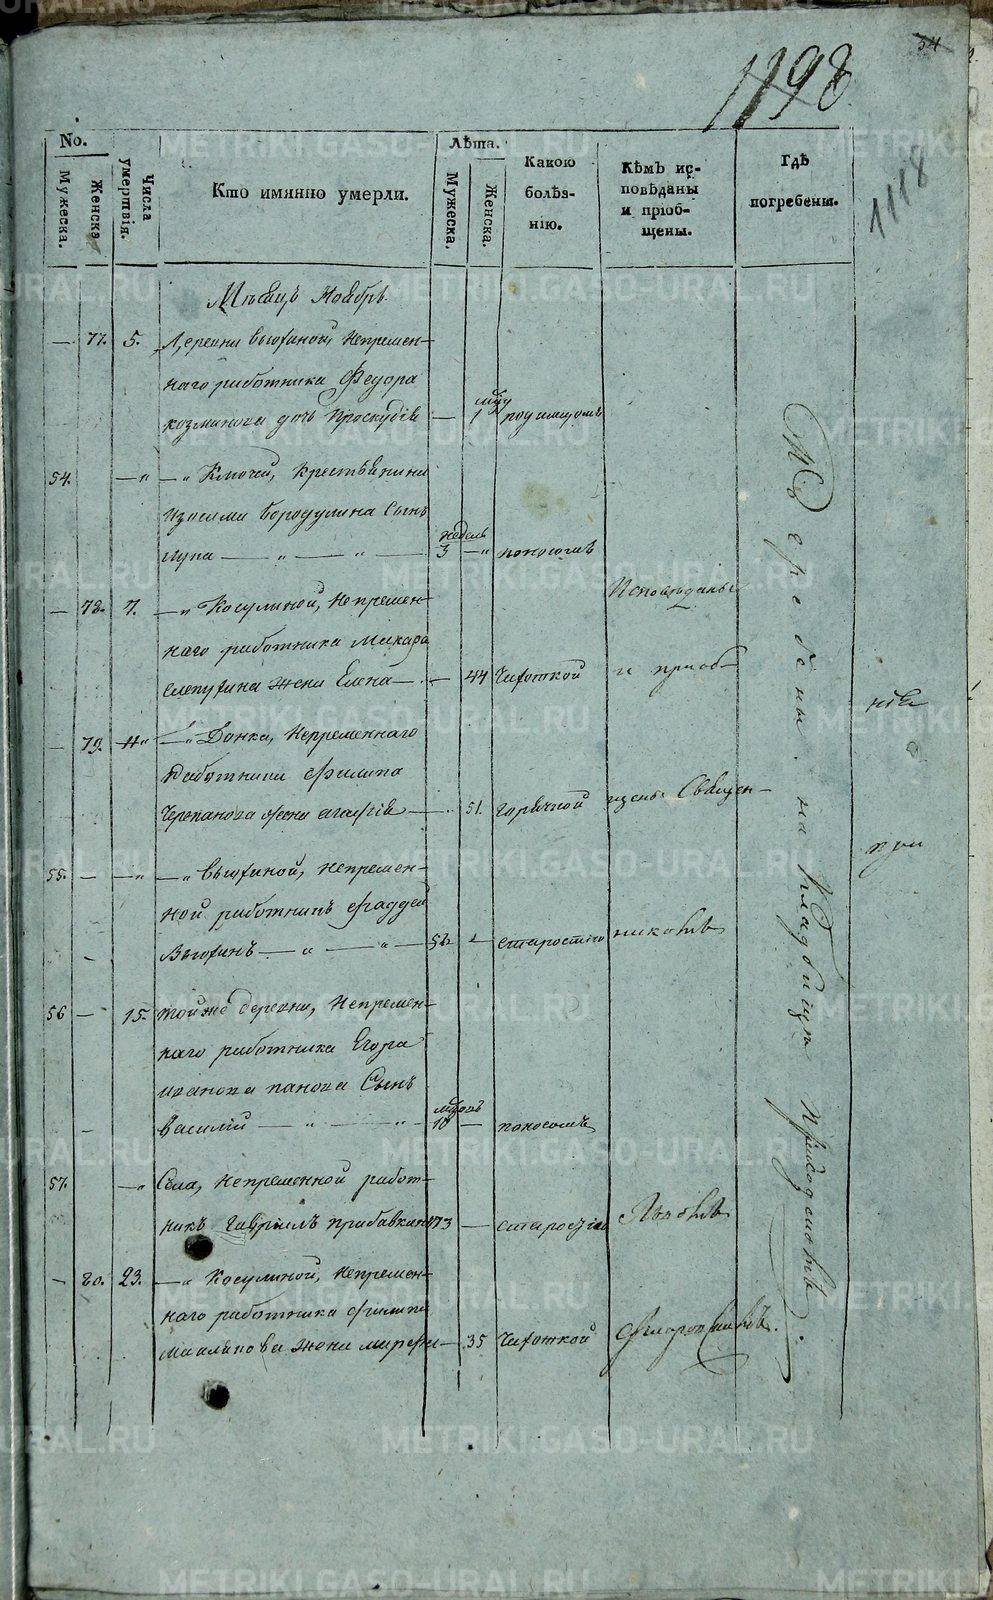 54
1198
1118
No.
Мужеска.
Женска.
Числа умертвія.
Кто имянно умерли.
Лѣта.
Мужеска.
Женска.
Какою болѣз-
нію.
Кѣмъ ис-
повѣданы
и пріоб-
щены.
Гдѣ
погребены.
Мѣсяцъ Ноябрь.
— 77. 5. Деревни Вьюхиной, Непремен-
наго работника Федора
Козминова дочь Проскудія — 1 родимцомъ
54. — „ — „ Ключей, Крестьянина
Изосима Бородулина Сынъ
недель
Лупа — „ — „ — 3 — „ поносомъ
— 78. 7. — „ Косулиной, Непремен-
наго работника Макара
Слепухина жена Елена — 44 Чахоткой
— 79. 11 „ — „ Донка, Непременнаго
Работника Филипа
Черепанова жена Агафія — 51. горячкой
55. — — „ — „ Вьюхиной, Непремен-
ной работникъ Фаддей
Вьюхинъ — „ — „ — 52 — старостію
56 — 15. Той же деревни, Непремен-
наго работника Егора
Иванова Панова Сынъ
Василій — „ — „ — 10 — поносомъ
57. — „ Села, Непременной работ-
никъ Гавріилъ Прибавкинъ 73 — старостію
— 80. 23. — „ Косулиной, Непремен-
наго работника Филипа
жена Марфа — 35 Чахоткой
Исповѣданы
и приоб-
щены Священ-
никомъ
Погребены на Кладбищѣ Приходскомъ.
METRIKI.GASO-URAL.RU